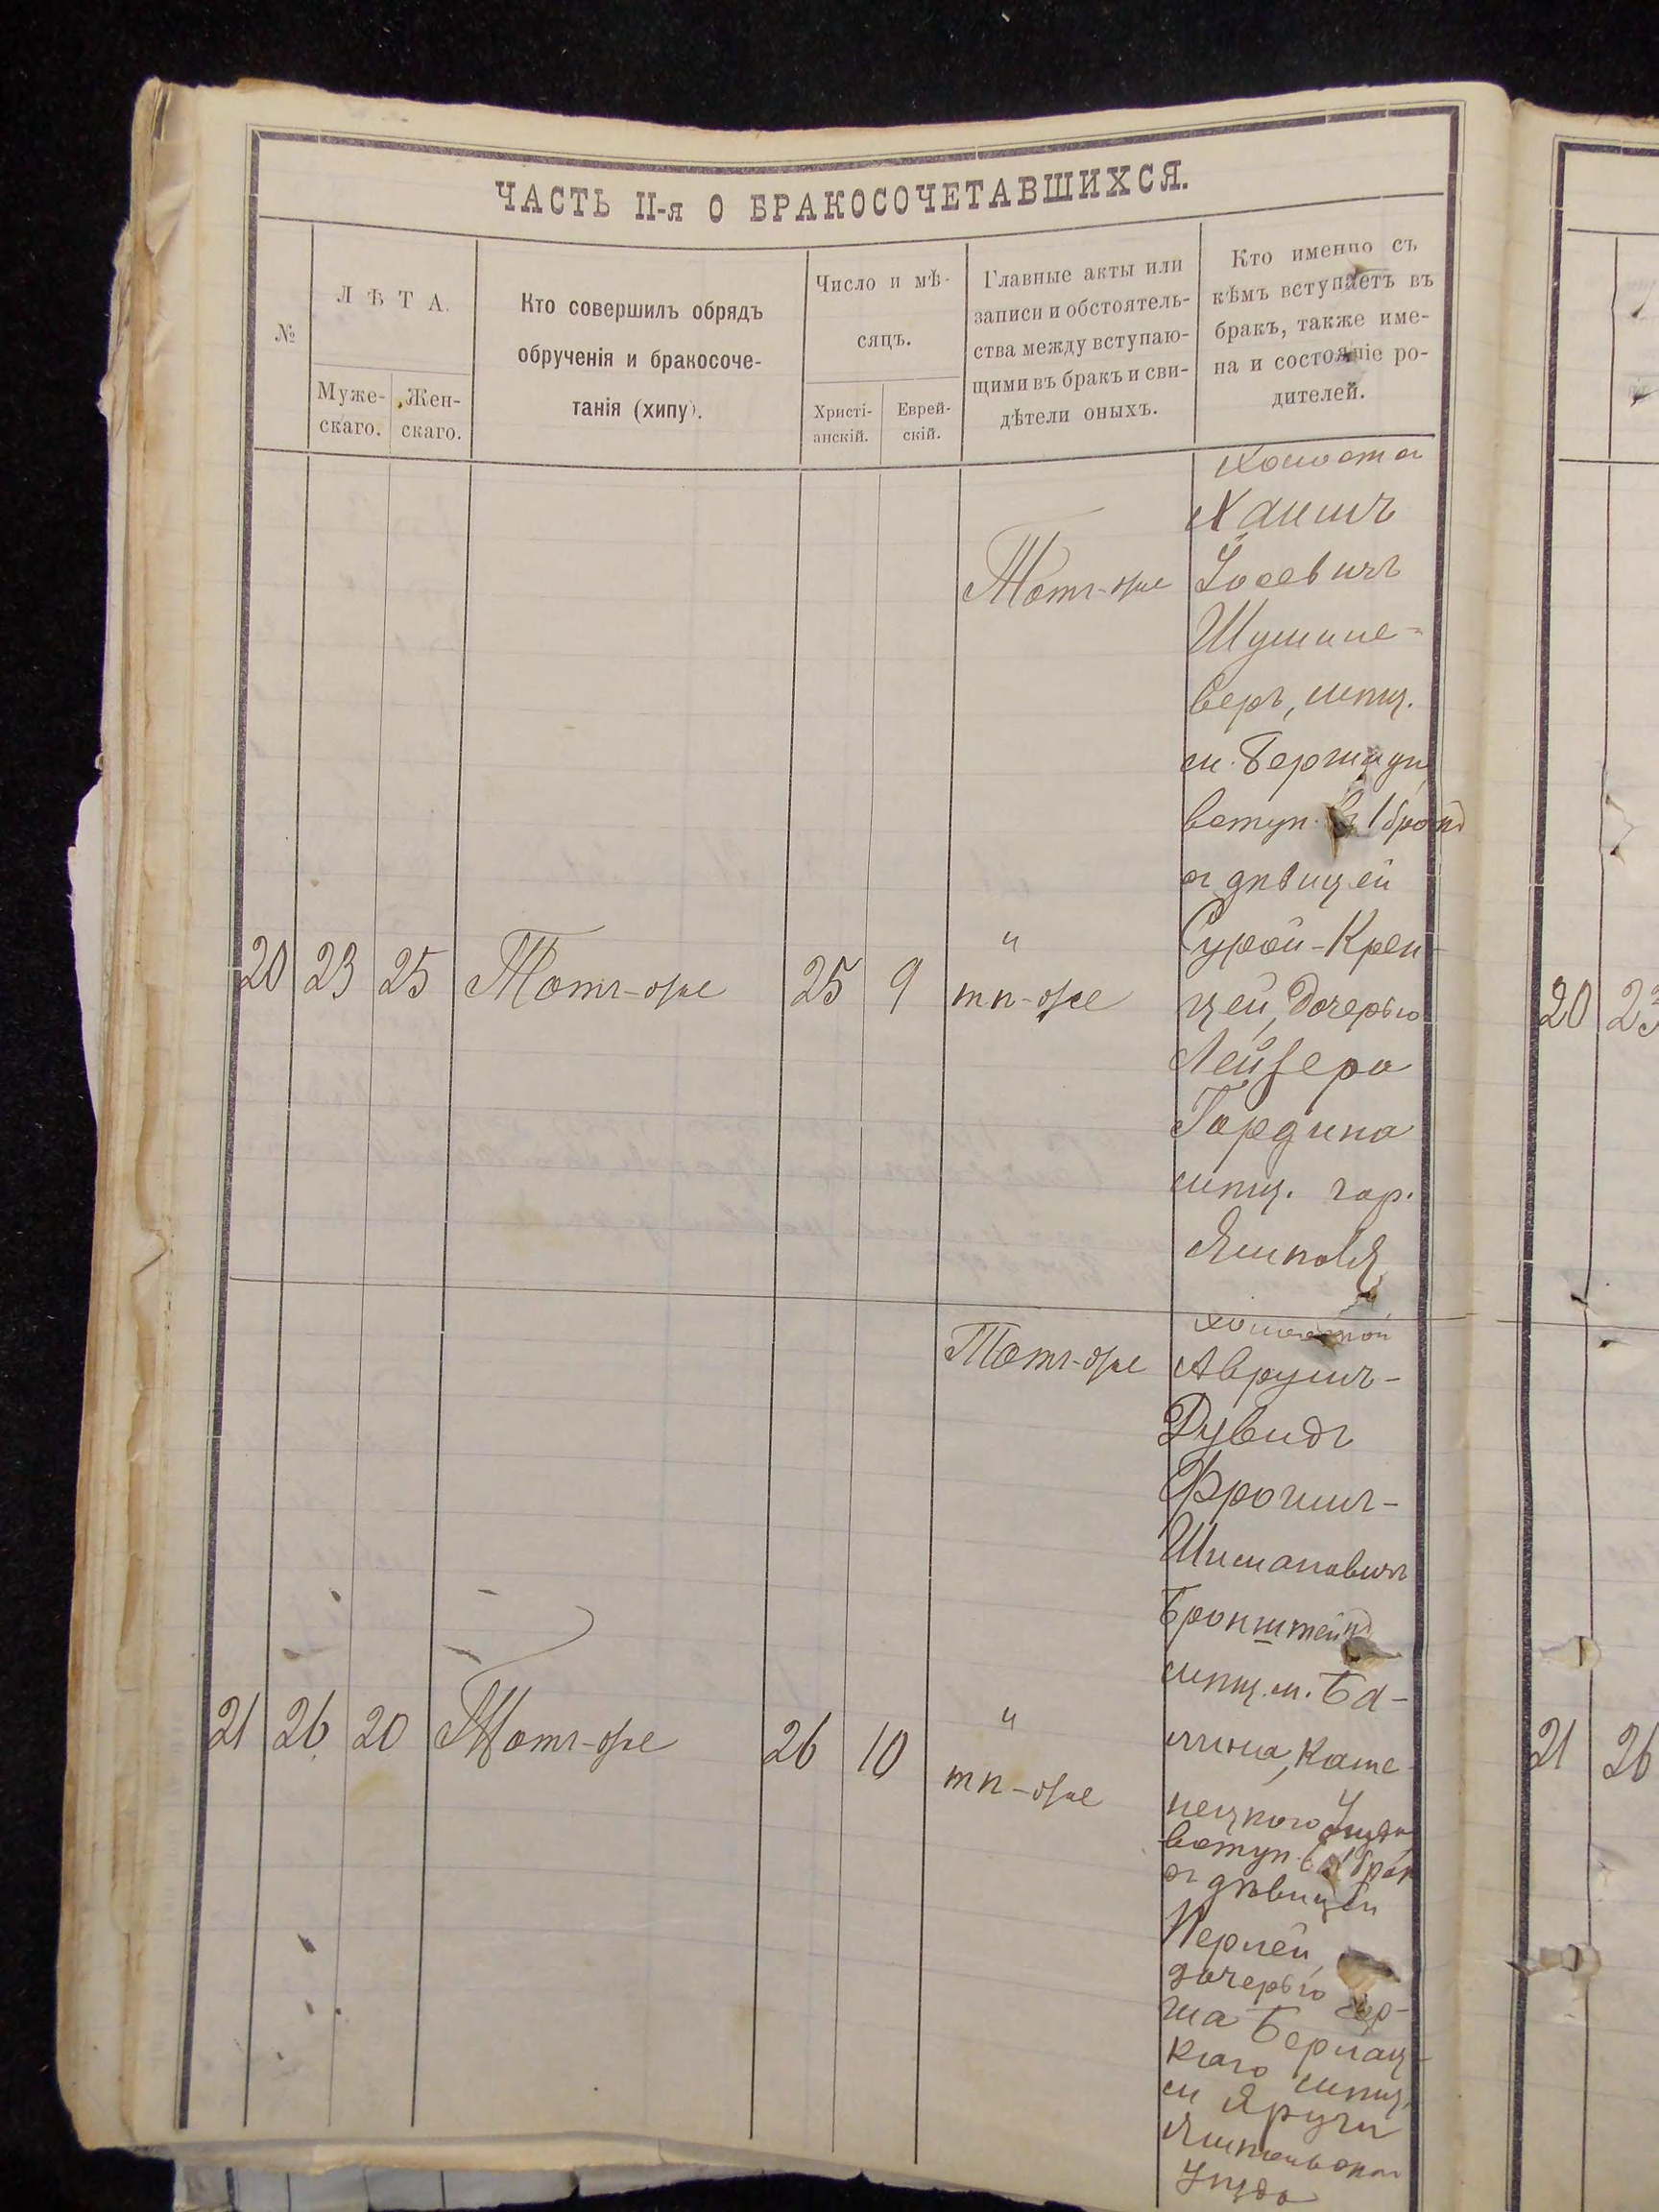 ЧАСТЬ II-я О БРАКОСОЧЕТАВШИХСЯ.
№
ЛѢТА.
Муже-
скаго.
Жен-
скаго.
Кто совершилъ обрядъ
обрученія и бракосоче-
танія (хипу).
Число и мѣ-
сяцъ.
Христі-
анскій.
Еврей-
скій.
Главные акты или
записи и обстоятель-
ства между вступаю-
щими въ бракъ и сви-
дѣтели оныхъ.
Кто именно съ
кѣмъ вступаетъ въ
бракъ, также име-
на и состояніе ро-
дителей.
20 23 25 Тотъ-же 25 9
Тотъ-же
"
тѣ-же
Холоста
Хаимъ
Іосевичъ
веръ, мѣщ.
м. Бершади
вступ. въ 1 бракъ
съ дѣвицей
Сурой-Крен-
цей, дочерью
Лейзера
Гордина
мѣщ. гор.
21 26 20 Тотъ-же 26 10
Тотъ-же
"
тѣ-же
холостой
Аврумъ-
Дувидъ
Фроимъ-
Шимановичъ
Бронштейнъ
мѣщ. м. Ба-
лина, Каме-
нецкаго Уѣзда
вступ. въ 1 брак
съ дѣвицей
Перлей,
дочерью Гер-
ша Берлац-
каго мѣщ.
м Яруги
Ямпольскаго
Уѣзда
20 23
21 26